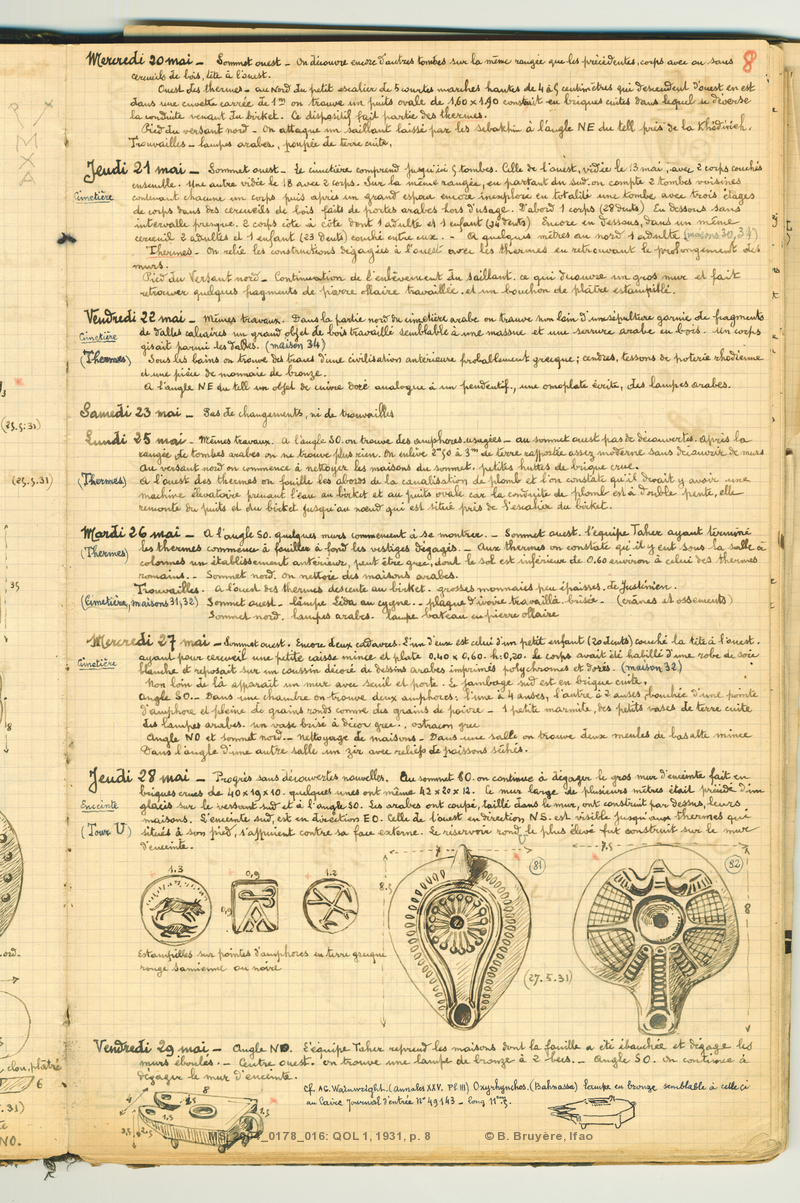 8
Mercredi 20 mai — Sommet ouest — On découvre encore d'autres tombes sur la même rangée que les précédentes, corps avec ou sans
cercueils de bois, tête à l'ouest.
Ouest des thermes — au Nord du petit escalier de 5 courtes marches hautes de 4 à 5 centimètres qui descendent d'ouest en est
dans une cuvette carrée de 1m on trouve un puits ovale de 1,60 x 1,90 construit en briques cuites dans lequel se déverse
la conduite venant du birket. Ce dispositif fait partie des thermes.
Pied du versant nord — On attaque un saillant laissé par les sebakhin à l'angle NE du tell près de la Khédivieh.
Trouvailles — lampes arabes, poupée de terre cuite.
Jeudi 21 mai — Sommet ouest — Le cimetière comprend jusqu'ici 5 tombes. Celle de l'ouest, vidée le 13 mai, avec 2 corps couchés
Cimetière
ensemble. Une autre vidée le 18 avec 2 corps. Sur la même rangée, en partant du sud on compte 2 tombes voisines
contenant chacune un corps puis après un grand espace encore inexploré en totalité une tombe avec trois étages
de corps dans des cercueils de bois faits de portes arabes hors d'usage. D'abord 1 corps (28 dents) En dessous sans
intervalle presque, 2 corps côte à côte dont 1 adulte et 1 enfant (34 dents) Encore en dessous, dans un même
cercueil 2 adultes et 1 enfant (23 dents) couché entre eux. — A quelques mètres au nord 1 adulte (maisons 30, 34)
Thermes — On relie les constructions dégagées à l'ouest avec les thermes en retrouvant le prolongement des
murs.
Pied du Versant nord — Continuation de l'enlèvement du saillant, ce qui découvre un gros mur et fait
retrouver quelques fragments de pierre ollaire travaillée et un bouchon de plâtre estampillé.
Vendredi 22 mai — Mêmes travaux. Dans la partie nord du cimetière arabe on trouve non loin d'une sépulture garnie de fragments
Cimetière
de dalles calcaires un grand objet de bois travaillé semblable à une massue et une serrure arabe en bois. Un corps
gisait parmi les dalles. (maison 34)
(Thermes)
Sous les bains on trouve des traces d'une civilisation antérieure probablement grecque; cendres, tessons de poterie rhodienne
et une pièce de monnaie de bronze.
A l'angle NE du tell un objet de cuivre doré analogue à un pendentif, une omoplate écrite, des lampes arabes.
Samedi 23 mai — Pas de changements, ni de trouvailles
(23.5.31)
Lundi 25 mai — Mêmes travaux. A l'angle SO. on trouve des amphores usagées — au sommet ouest pas de découvertes. Après la
rangée de tombes arabes on ne trouve plus rien. On enlève 2m50 à 3m de terre rapportée assez moderne sans découvrir de murs
Au versant nord on commence à nettoyer les maisons du sommet. petites huttes de brique crue.
(25.5.31)
(Thermes)
A l'ouest des thermes on fouille les abords de la canalisation de plomb et l'on constate qu'il devait y avoir une
machine élévatoire prenant l'eau au birket et au puits ovale car la conduite de plomb est à double pente, elle
remonte du puits et du birket jusqu'au nœud qui est situé près de l'escalier du birket.
Mardi 26 mai — A l'angle SO. quelques murs commencent à se montrer. — Sommet ouest. l'équipe Taher ayant terminé
(Thermes)
les thermes commence à fouiller à fond les vestiges dégagés. — Aux thermes on constate qu'il y eut sous la salle à
colonnes un établissement antérieur, peut être grec, dont le sol est inférieur de 0.60 environ à celui des thermes
romains. — Sommet nord. On nettoie des maisons arabes.
35
Trouvailles. A l'ouest des thermes descente au birket. grosses monnaies peu épaisses, de Justinien.
(Cimetière, maisons 31, 32)
Sommet ouest — lampe Léda au cygne. — plaque d'ivoire travaillé brisée. (crânes et ossements)
Sommet nord. lampes arabes. lampe bateau en pierre ollaire
Mercredi 27 mai — Sommet ouest. Encore deux cadavres. L'un d'eux est celui d'un petit enfant (20 dents) couché la tête à l'ouest.
Cimetière
ayant pour cercueil une petite caisse mince et plate 0.40 x 0.60. h: 0,20. Le corps avait été habillé d'une robe de soie
blanche et reposait sur un coussin décoré de dessins arabes imprimés polychromes et dorés. (maison 32)
Non loin de là apparaît un mur avec seuil et porte. Le jambage sud est en brique cuite.
Angle SO. — Dans une chambre on trouve deux amphores: l'une à 4 anses, l'autre à 2 anses bouchée d'une pointe
d'amphore et pleine de grains ronds comme des grains de poivre — 1 petite marmite, des petits vases de terre cuite
des lampes arabes. un vase brisé à décor grec, ostracon grec
Angle NO et sommet nord. — Nettoyage de maisons — Dans une salle on trouve deux meules de basalte mince
Dans l'angle d'une autre salle un zir avec reliefs de poissons séchés.
Jeudi 28 mai — Progrès sans découvertes nouvelles. Au sommet SO. on continue à dégager le gros mur d'enceinte fait en
Enceinte
briques crues de 40 x 19 x 10. quelques unes ont même 42 x 20 x 12. Le mur large de plusieurs mètres était précédé d'un
glacis sur le versant sud et à l'angle SO. Les arabes ont coupé, taillé dans le mur, ont construit par dessus, leurs
(Tour U)
maisons. L'enceinte sud, est en direction EO. Celle de l'ouest en direction N.S. est visible jusqu'aux thermes qui
situés à son pied, s'appuient contre sa face externe. Le réservoir rond le plus élevé fut construit sur le mur
d'enceinte.
1.3
0,9
0,9
1.2
8.5
7
81
7.5
82
8
Estampilles sur pointes d'amphores en terre grecque
rouge samienne ou noire
(27.5.31)
Vendredi 29 mai — Angle NO. L'équipe Taher reprend les maisons dont la fouille a été ébauchée et dégage les
murs éboulés. — Centre ouest. on trouve une lampe de bronze à 2 becs. — Angle SO. On continue à
dégager le mur d'enceinte.
clou, plâtre
6
NO.
8
Cf. A.G. Wainwright. (Annales XXV. Pl III) Oxyrhynchos. (Bahnassa) Lampe en bronze semblable à celle ci
au Caire Journal d'entrée N° 49143 — long 11m5.
QOL 1, 1931, p. 8 © B. Bruyère, Ifao